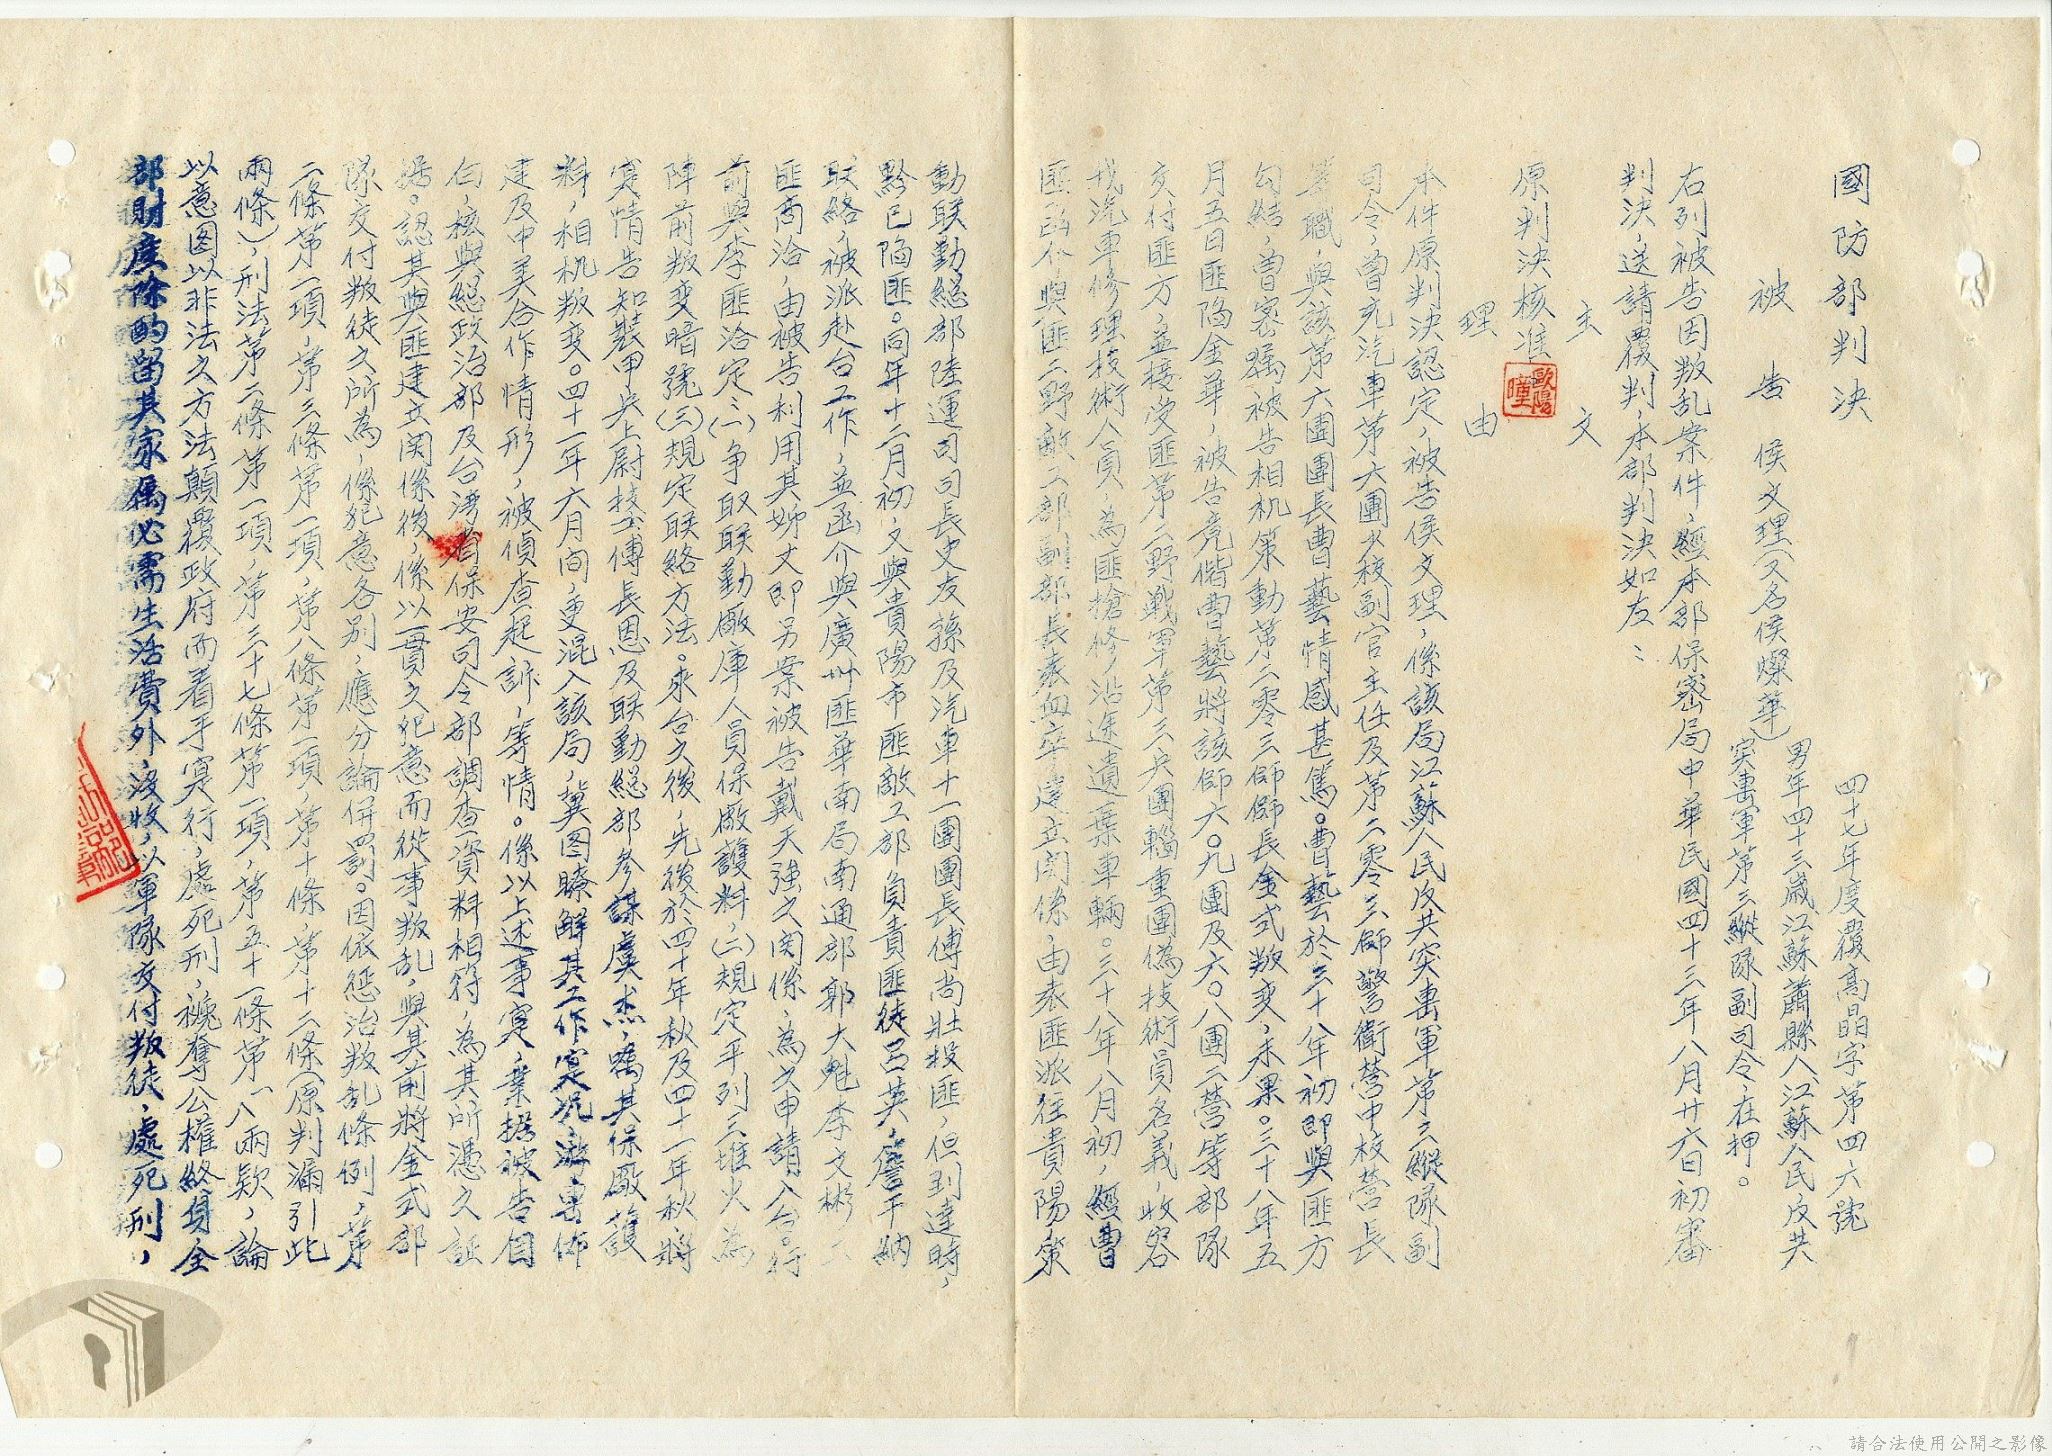 國防部判決
四十七年度覆高晶字第四六號
被告 侯文理(又名侯燦華)
男年四十三歲江蘇蕭縣人江蘇人民反共
突擊軍第三縱隊副司令,在押。
右列被告因叛乱案件,經本部保密局中華民國四十三年八月廿六日初審
判決,送請覆判,本部判決如左:
主文
原判決核准
歐陽
理由
本件原判決認定,被告侯文理,係該局江蘇人民反共突擊軍第三縱隊副
司令,曾充汽車第六團少校副官主任及第二零三師警衛營中校營長
等職,與該第六團團長曹藝情感甚篤。曹藝於三十八年初即與匪方
勾結,曾密囑被告相机策動第二零三師師長金式叛变,未果。三十八年五
月五日匪陷金華,被告竟偕曹藝將該師六〇九團及六〇八團二營等部隊
交付匪方,並接受匪第二野戰軍第三兵團輜重團偽技術員名義,收容
我汽車修理技術人員,為匪搶修沿途遺棄車輛。三十八年八月初,經曹
匪函介與匪二野敵工部副部長袁血卒建立関係,由袁匪派往貴陽,策
動联勤總部陸運司司長史友蓀及汽車十一團團長傅尚壯投匪,但到達時,
黔已陷匪。同年十二月初,又與貴陽市匪敵工部負責匪徒呂英,詹干納
联絡,被派赴台工作,並函介與廣州匪華南局南通部郭大魁李文彬二
匪商洽,由被告利用其姊丈即另案被告戴天強之関係,為之申請入台。行
前與李匪洽定:(一)争取联勤廠庫人員保廠護料,(二)規定平列三堆火為
陣前叛变暗號(三)規定联絡方法。來台之後,先後於四十年秋及四十一年秋將
实情告知裝甲兵上尉技士傅長恩及联勤總部參謀虞杰,囑其保廠護
料,相机叛变。四十一年六月间,更混入該局,冀图瞭解其工作实况,游擊佈
建及中美合作情形,被偵查起訴,等情。係以上述事实,業据被告自
白,核與總政治部及台湾省保安司令部調查資料相符,為其所憑之証
据。認其與匪建立関係後,係以一貫之犯意而從事叛乱,與其前將金式部
隊交付叛徒之所為,係犯意各別,應分論併罰。因依惩治叛乱條例,第
二條第一項,第三條第一項,第八條第一項,第十條,第十二條(原判漏引此
兩條),刑法第二條第一項,第三十七條第一項,第五十一條第一八兩欵,論
以意図以非法之方法顛覆政府而着手实行,處死刑,褫奪公權終身全
部財產除酌留其家属必需生活費外,沒收,以軍隊交付叛徒,處死刑,
請合法使用公開之影像